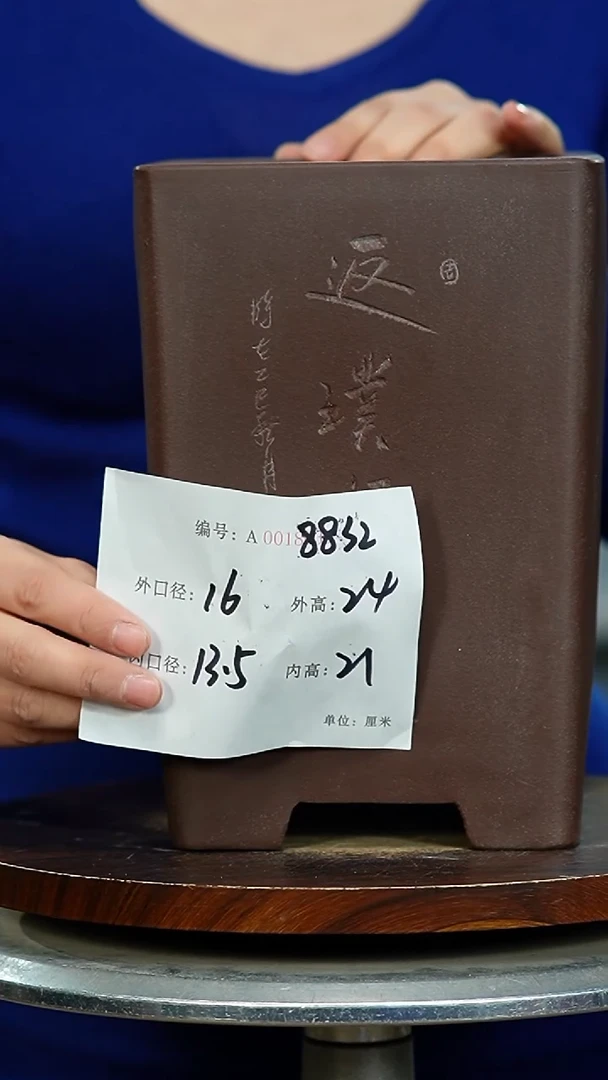 返
璞
编号: A 0018 8832
外口径: 16 外高: 24
内口径: 13.5 内高: 21
单位: 厘米